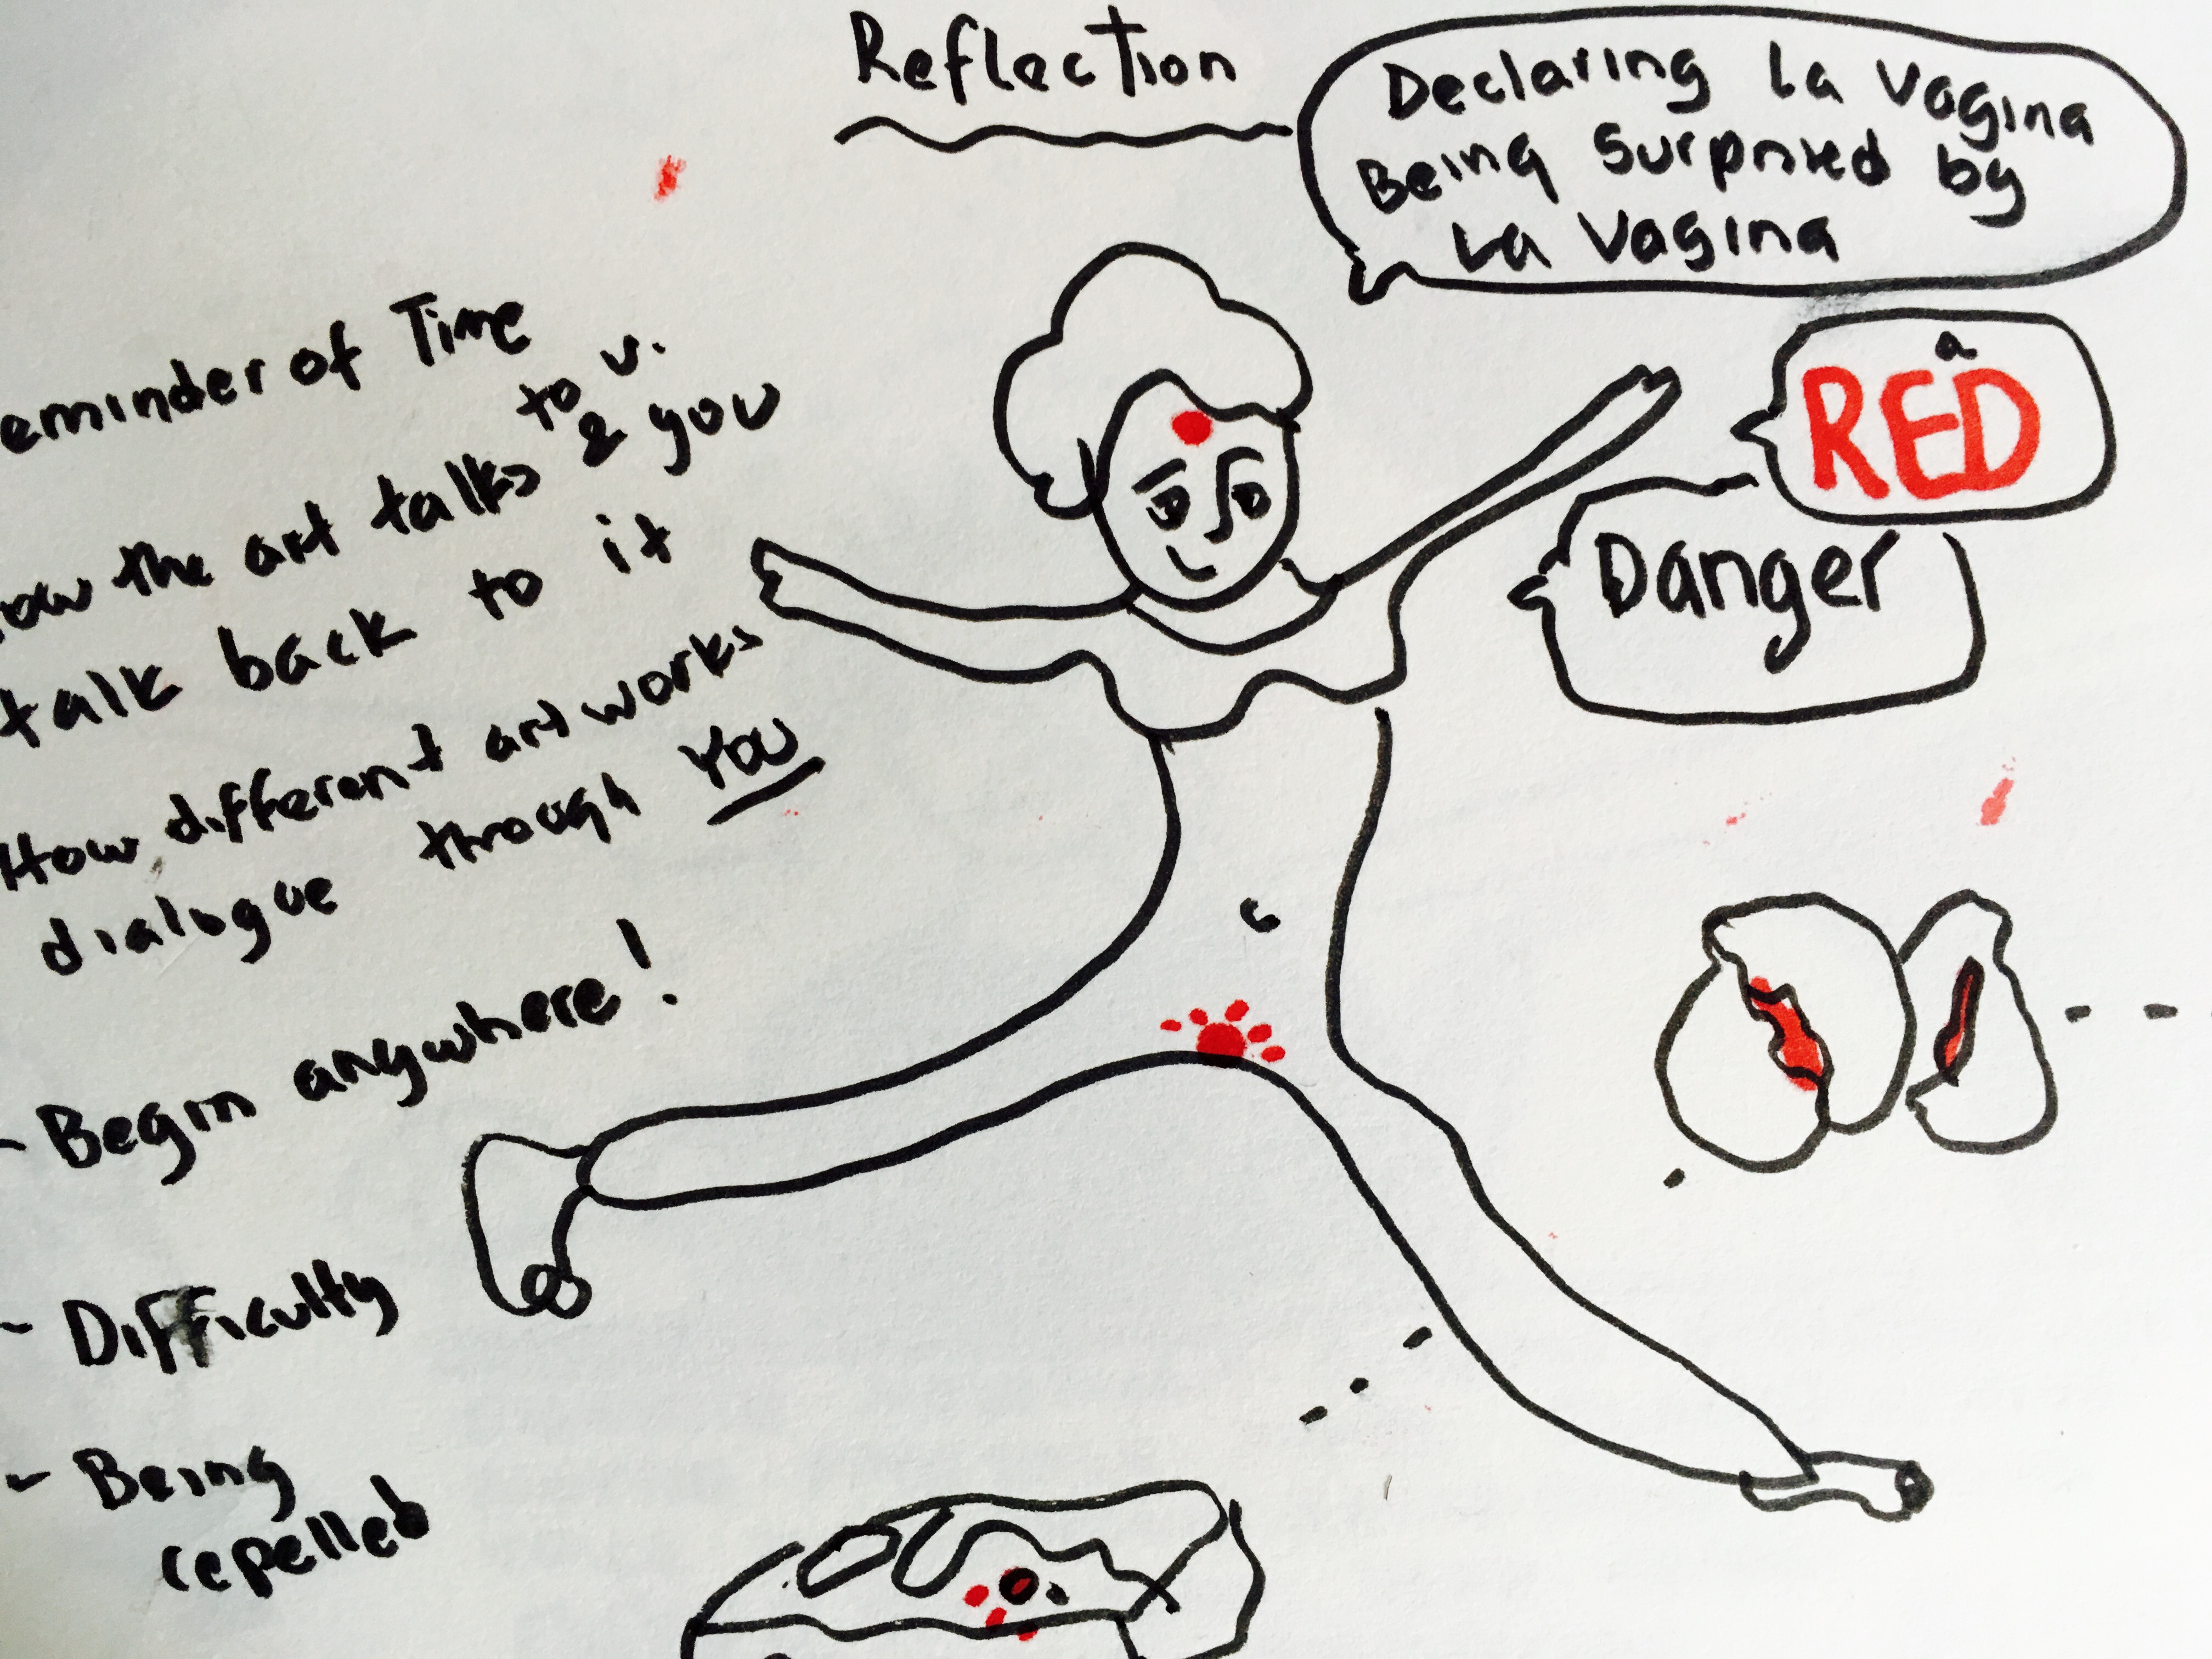 Reflection
Declaring La Vagina
Being Surprised by
La Vagina
a
RED
Danger
eminder of Time
ow the art talks to u. & you
talk back to it
How different artworks
dialogue through YOU
- Begin anywhere!
- Difficulty
- Being
repelled